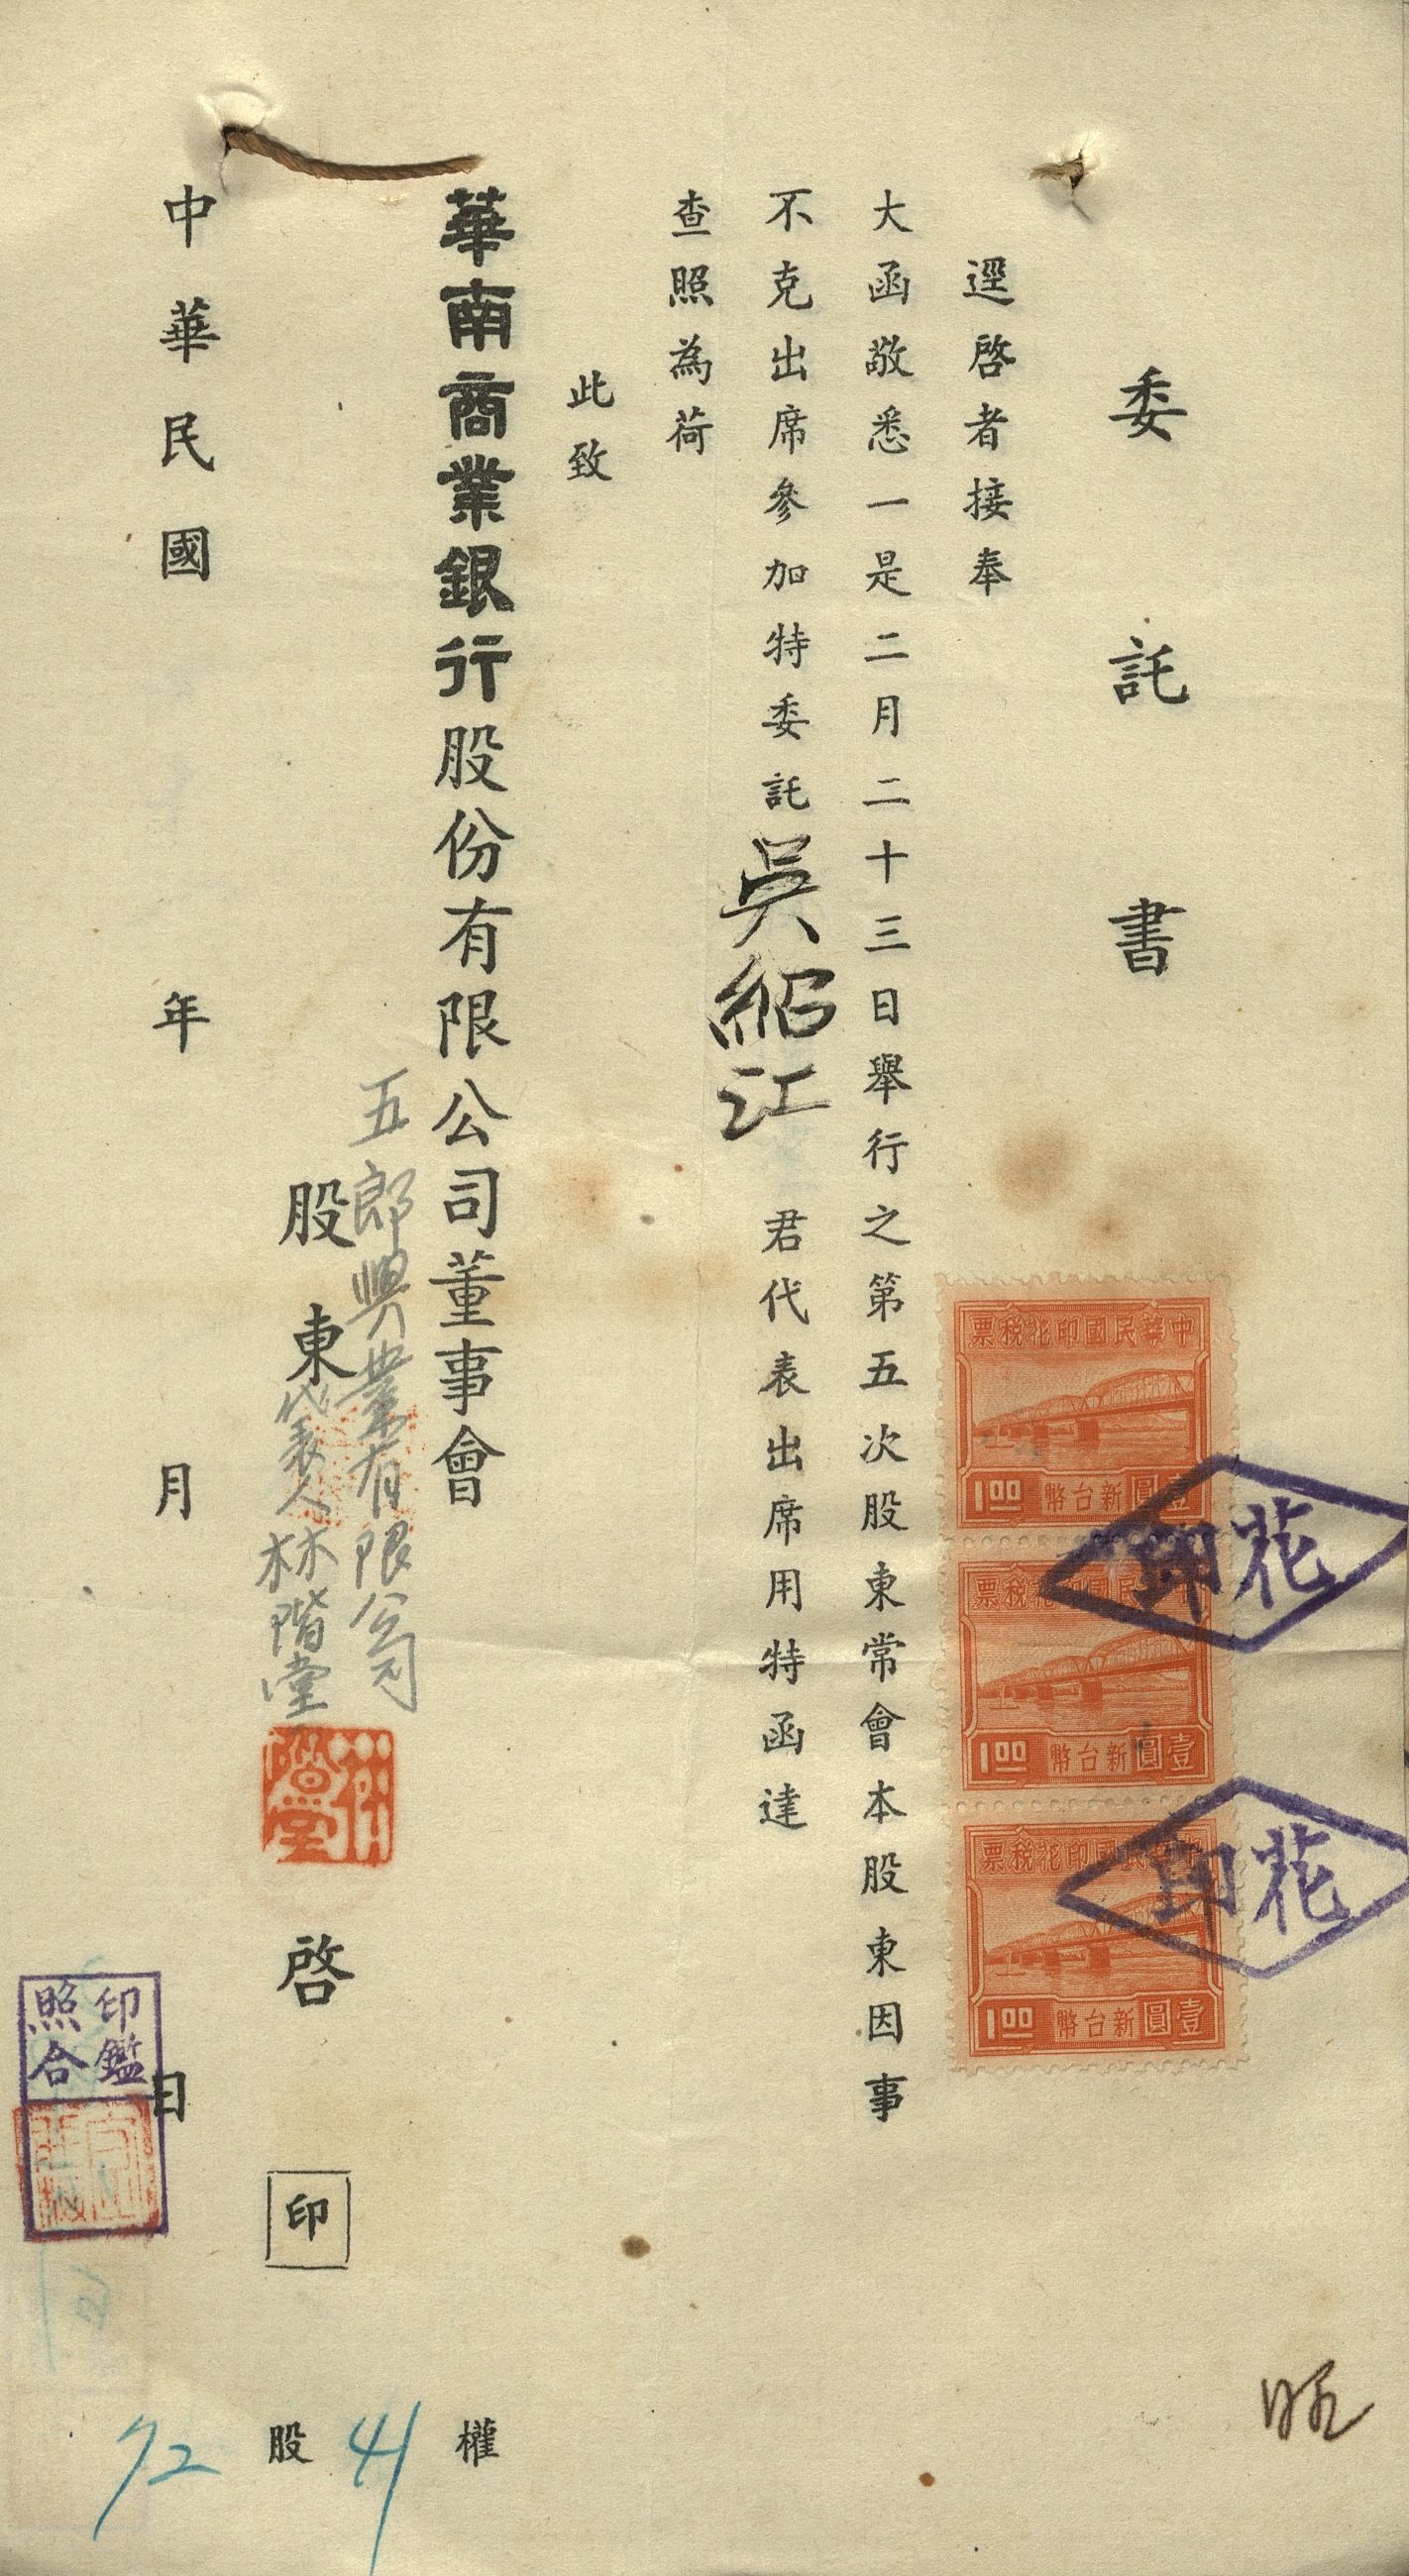 委託書
逕啓者接奉
大函敬悉一是二月二十三日舉行之第五次股東常會本股東因事
不克出席參加特委託吳紹江君代表出席用特函達
查照為荷
此致
華南商業銀行股份有限公司董事會
五郎興業有限公司
股東代表人林階堂啓
印
中華民國年月日
權
41
股
72
印鑑
照合
中華民國印花稅票
壹圓新台幣
1.00
中華民國印花稅票
壹圓新台幣
1.00
中華民國印花稅票
壹圓新台幣
1.00
花印
花印